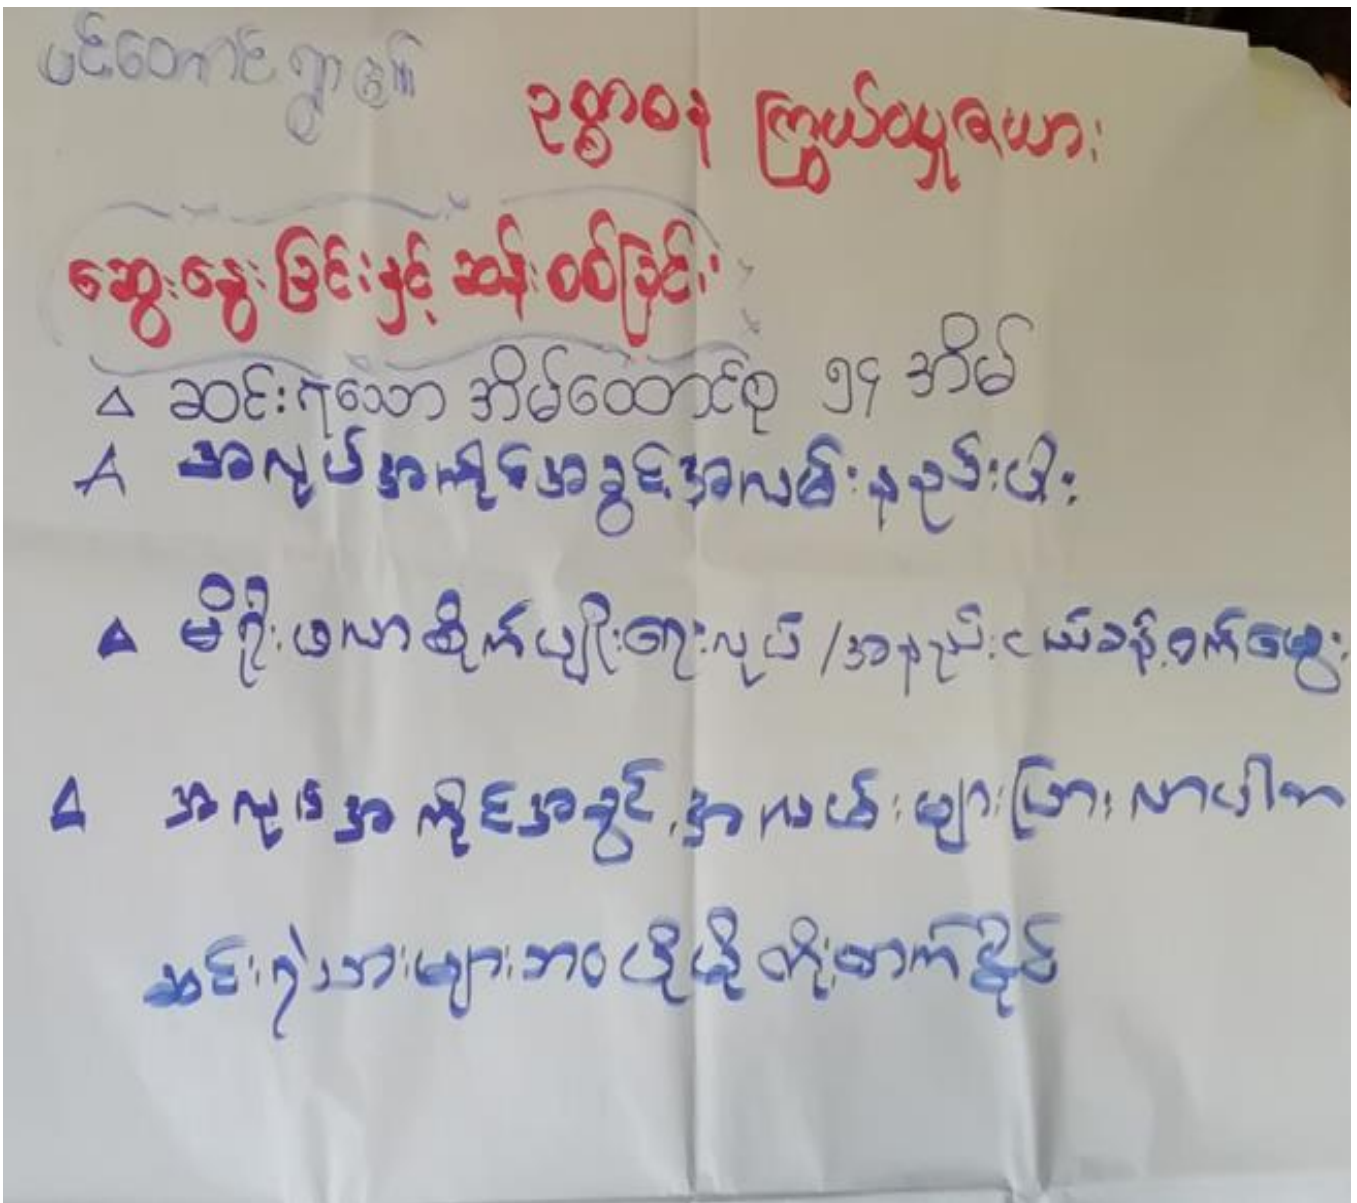 ပင်းတောင်ရွာ
ဥစ္စာဓန ကြွယ်ဝမှုဇယား
ဆွေးနွေးခြင်းနှင့် ဆန်းစစ်ခြင်း
△ ဆင်းရဲသော အိမ်ထောင်စု ၅၄ အိမ်
△ အလုပ်အကိုင်အခွင့်အလမ်းနည်းပါး
△ မိရိုးဖလာစိုက်ပျိုးရေးလုပ် / အနည်းငယ်ခန့် ဝက်မွေး
△ အလုပ်အကိုင်အခွင့်အလမ်းများပြားလာပါက
ဆင်းရဲသားများဘဝ ပိုမိုတိုးတက်နိုင်